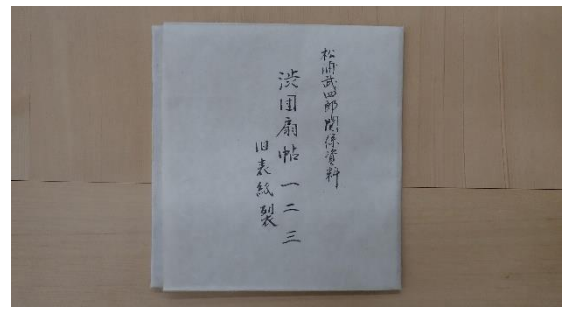 松浦武四郎関係資料
渋団扇帖一二三
旧表紙裂